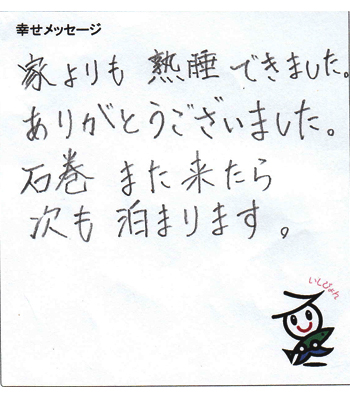 幸せメッセージ
家よりも 熟睡 できました。
ありがとうございました。
石巻 また 来たら
次も 泊まります。
いしぴょん